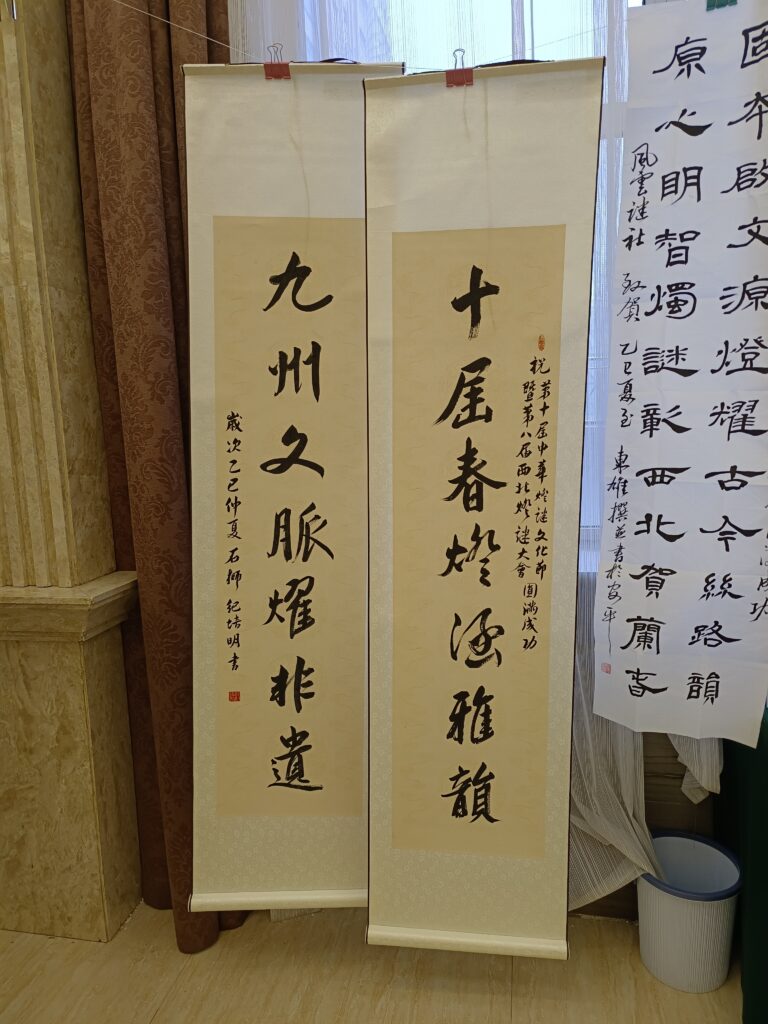 成功
固本啟文源燈耀古今絲路韻
原心明智燭謎彰西北賀蘭
風雲謎社 致賀 乙巳夏至 東雄撰並書於安平
祝第十屆中華燈謎文化節
暨第八屆西北燈謎大會圓滿成功
十屆春燈涵雅韻
九州文脈耀非遺
歲次乙巳仲夏石獅紀培明書